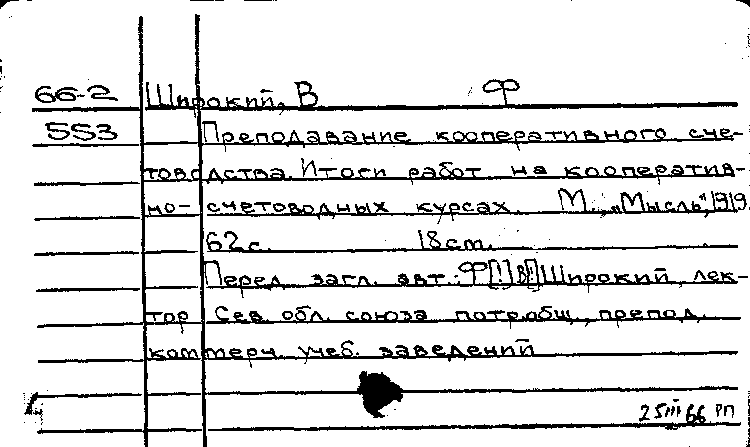 66-2 Широкий, В Ф
553 Преподавание кооперативного сче-
товодства. Итоги работ на кооператив-
но-счетоводных курсах. М., "Мысль", 1919.
62 с. 18 см.
Перед загл. авт.: Ф[!] В[!] Широкий, лек-
тор Сев. обл. союза потр. общ., препод.
коммерч. учеб. заведений
25 III 66 РП